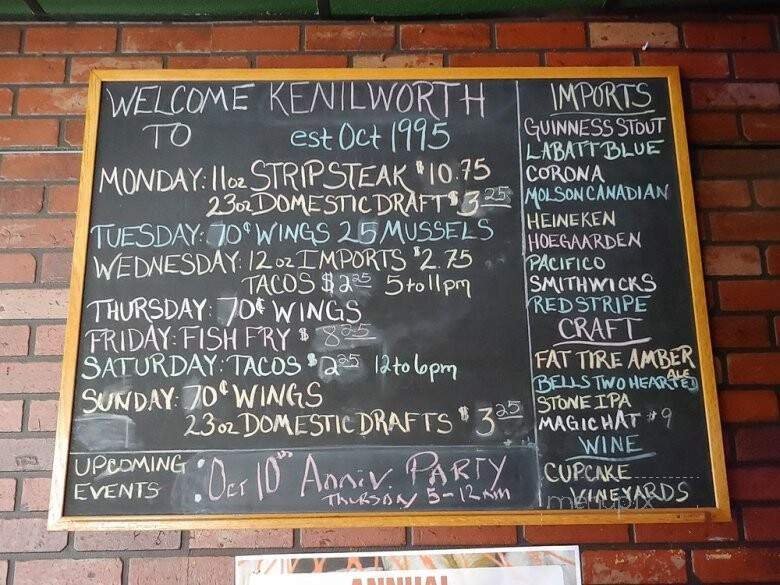 WELCOME KENILWORTH
TO est Oct 1995
MONDAY: 11oz STRIP STEAK $10.75
23oz DOMESTIC DRAFT $3.25
TUESDAY: 70¢ WINGS 25 MUSSELS
WEDNESDAY: 12oz IMPORTS $2.75
TACOS $2.25 5 to 11pm
THURSDAY: 70¢ WINGS
FRIDAY: FISH FRY $8.25
SATURDAY: TACOS $2.25 12 to 6pm
SUNDAY: 70¢ WINGS
23oz DOMESTIC DRAFTS $3.25
UPCOMING EVENTS : Oct 10th Anniv. PARTY
THURSDAY 5-12AM
IMPORTS
GUINNESS STOUT
LABATT BLUE
CORONA
MOLSON CANADIAN
HEINEKEN
HOEGAARDEN
PACIFICO
SMITHWICKS
RED STRIPE
CRAFT
FAT TIRE AMBER ALE
BELLS TWO HEARTED
STONE IPA
MAGIC HAT #9
WINE
CUPCAKE
VINEYARDS
menupix
ANNUAL